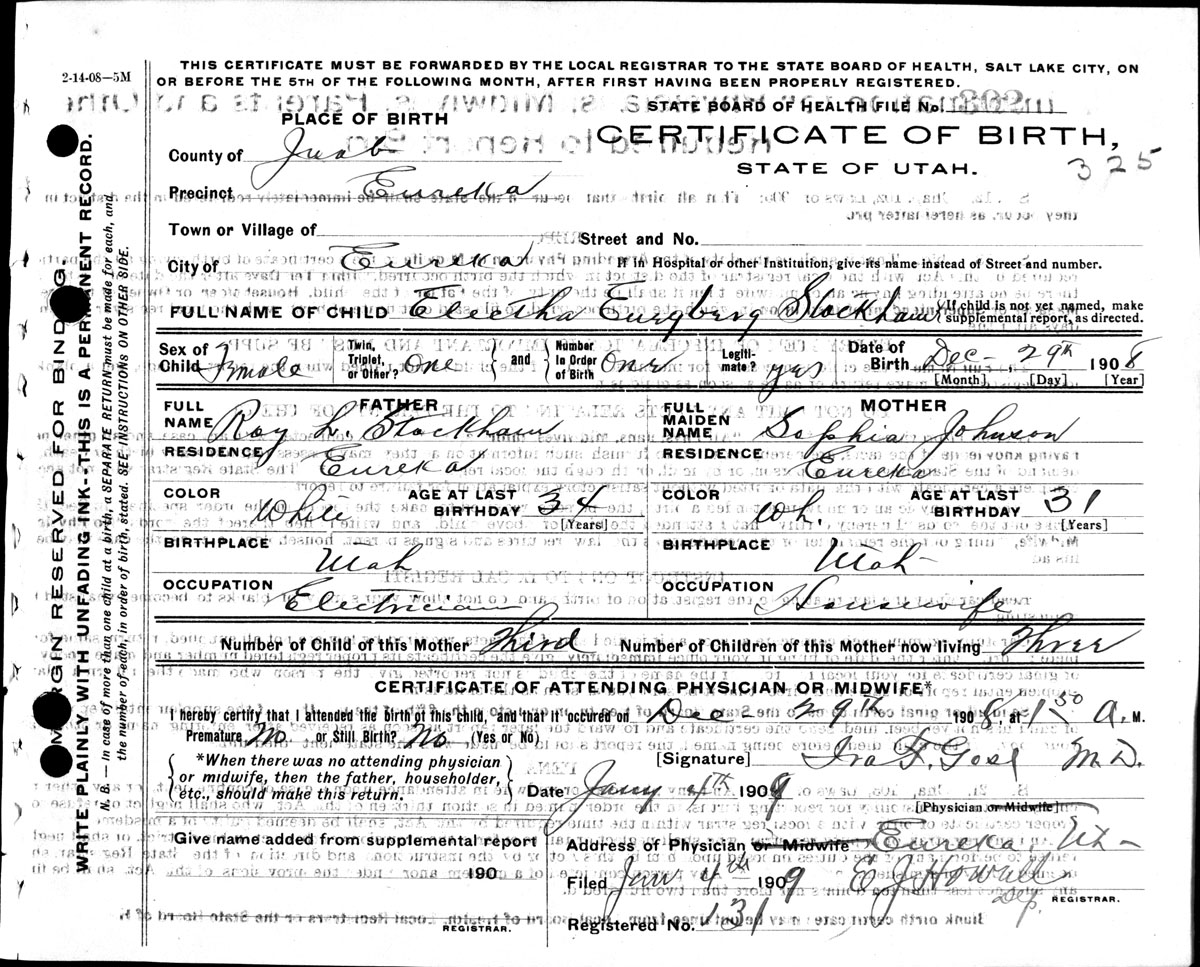 2-14-08—5M
THIS CERTIFICATE MUST BE FORWARDED BY THE LOCAL REGISTRAR TO THE STATE BOARD OF HEALTH, SALT LAKE CITY, ON
OR BEFORE THE 5TH OF THE FOLLOWING MONTH, AFTER FIRST HAVING BEEN PROPERLY REGISTERED.
STATE BOARD OF HEALTH FILE No.
PLACE OF BIRTH
CERTIFICATE OF BIRTH,
STATE OF UTAH.
325
County of Juab
Precinct Eureka
Town or Village of
Street and No.
City of Eureka
If in Hospital or other Institution, give its name instead of Street and number.
FULL NAME OF CHILD Stockham
{If child is not yet named, make
supplemental report, as directed.
Sex of Child Female
Twin, Triplet, or Other? One
{ and }
Number in Order of Birth One
Legitimate? yes
Date of Birth Dec- 29th 1908
[Month] [Day] [Year]
FATHER
FULL NAME Roy L. Stockham
RESIDENCE Eureka
COLOR White
AGE AT LAST BIRTHDAY 34 [Years]
BIRTHPLACE Utah
OCCUPATION Electrician
MOTHER
FULL MAIDEN NAME Sophia Johnson
RESIDENCE Eureka
COLOR Wh.
AGE AT LAST BIRTHDAY 31 [Years]
BIRTHPLACE Utah
OCCUPATION Housewife
Number of Child of this Mother Third
Number of Children of this Mother now living Three
CERTIFICATE OF ATTENDING PHYSICIAN OR MIDWIFE*
I hereby certify that I attended the birth of this child, and that it occured on Dec- 29th 1908, at 1 50 a. M.
Premature No or Still Birth? No (Yes or No)
{ *When there was no attending physician
or midwife, then the father, householder,
etc., should make this return. }
[Signature] Ira F. M.D.
Date Jany 4th 1909
[Physician or Midwife]
Give name added from supplemental report
190
REGISTRAR.
Address of Physician or Midwife Eureka, Ut-
Filed Jan 4th 1909 E J Howell
Dep. REGISTRAR.
Registered No. 131
MARGIN RESERVED FOR BINDING
WRITE PLAINLY WITH UNFADING INK--THIS IS A PERMANENT RECORD.
N. B. — In case of more than one child at a birth, a SEPARATE RETURN must be made for each, and
the number of each, in order of birth, stated. SEE INSTRUCTIONS ON OTHER SIDE.